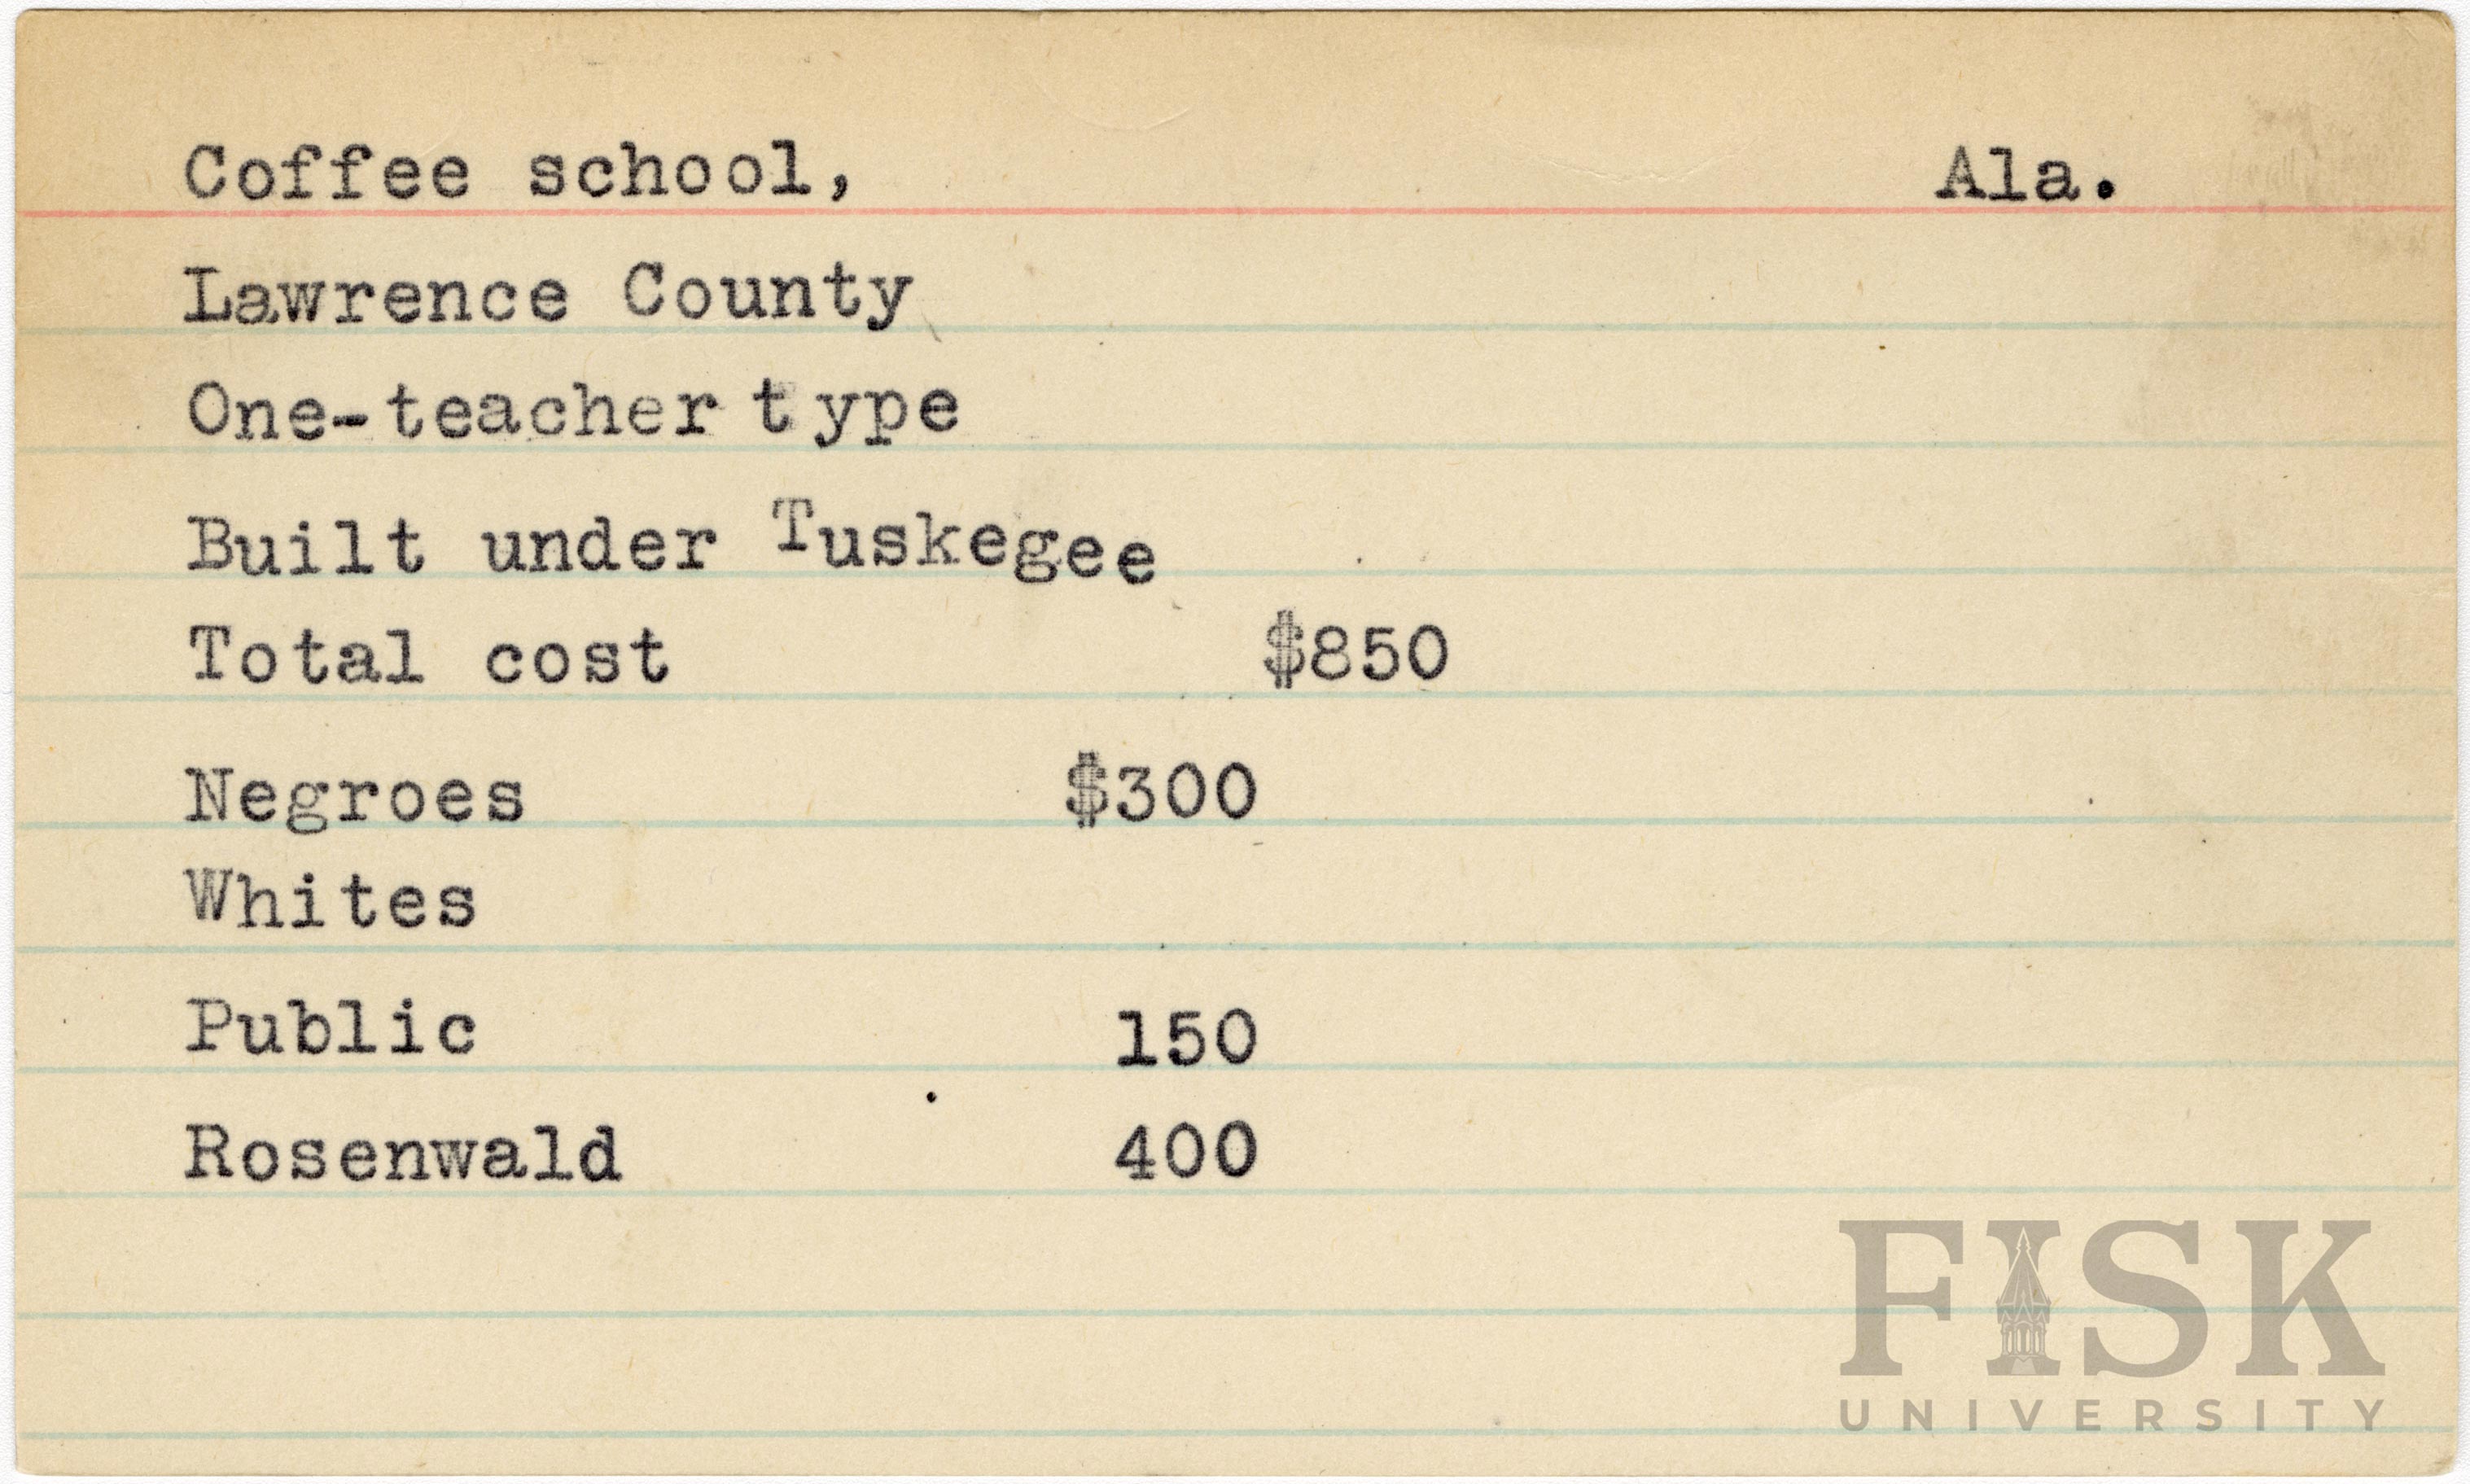 Coffee school, Ala.
Lawrence County
One-teacher type
Built under Tuskegee
Total cost $850
Negroes $300
Whites
Public 150
Rosenwald 400
FISK
UNIVERSITY